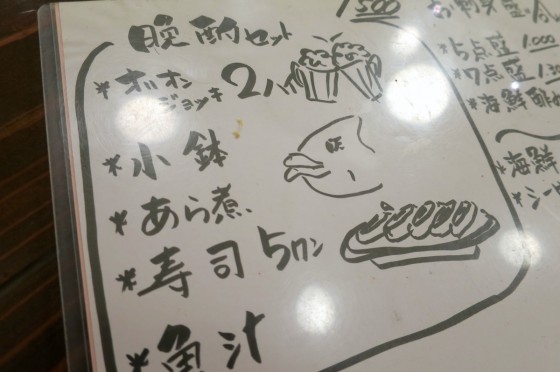 晩酌セット
*オリオンジョッキ2ハイ
*小鉢
*あら煮
*寿司5カン
*魚汁
1,500
*5点盛
*7点盛
*海鮮
*海鮮